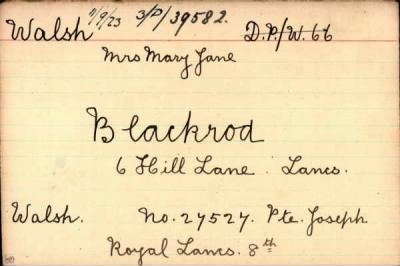 Walsh 11/9/23 3/P/39582. D.P./W.66
Mrs Mary Jane
Blackrod
6 Hill Lane. Lancs.
Walsh. No. 27527. Pte. Joseph
Royal Lancs. 8th